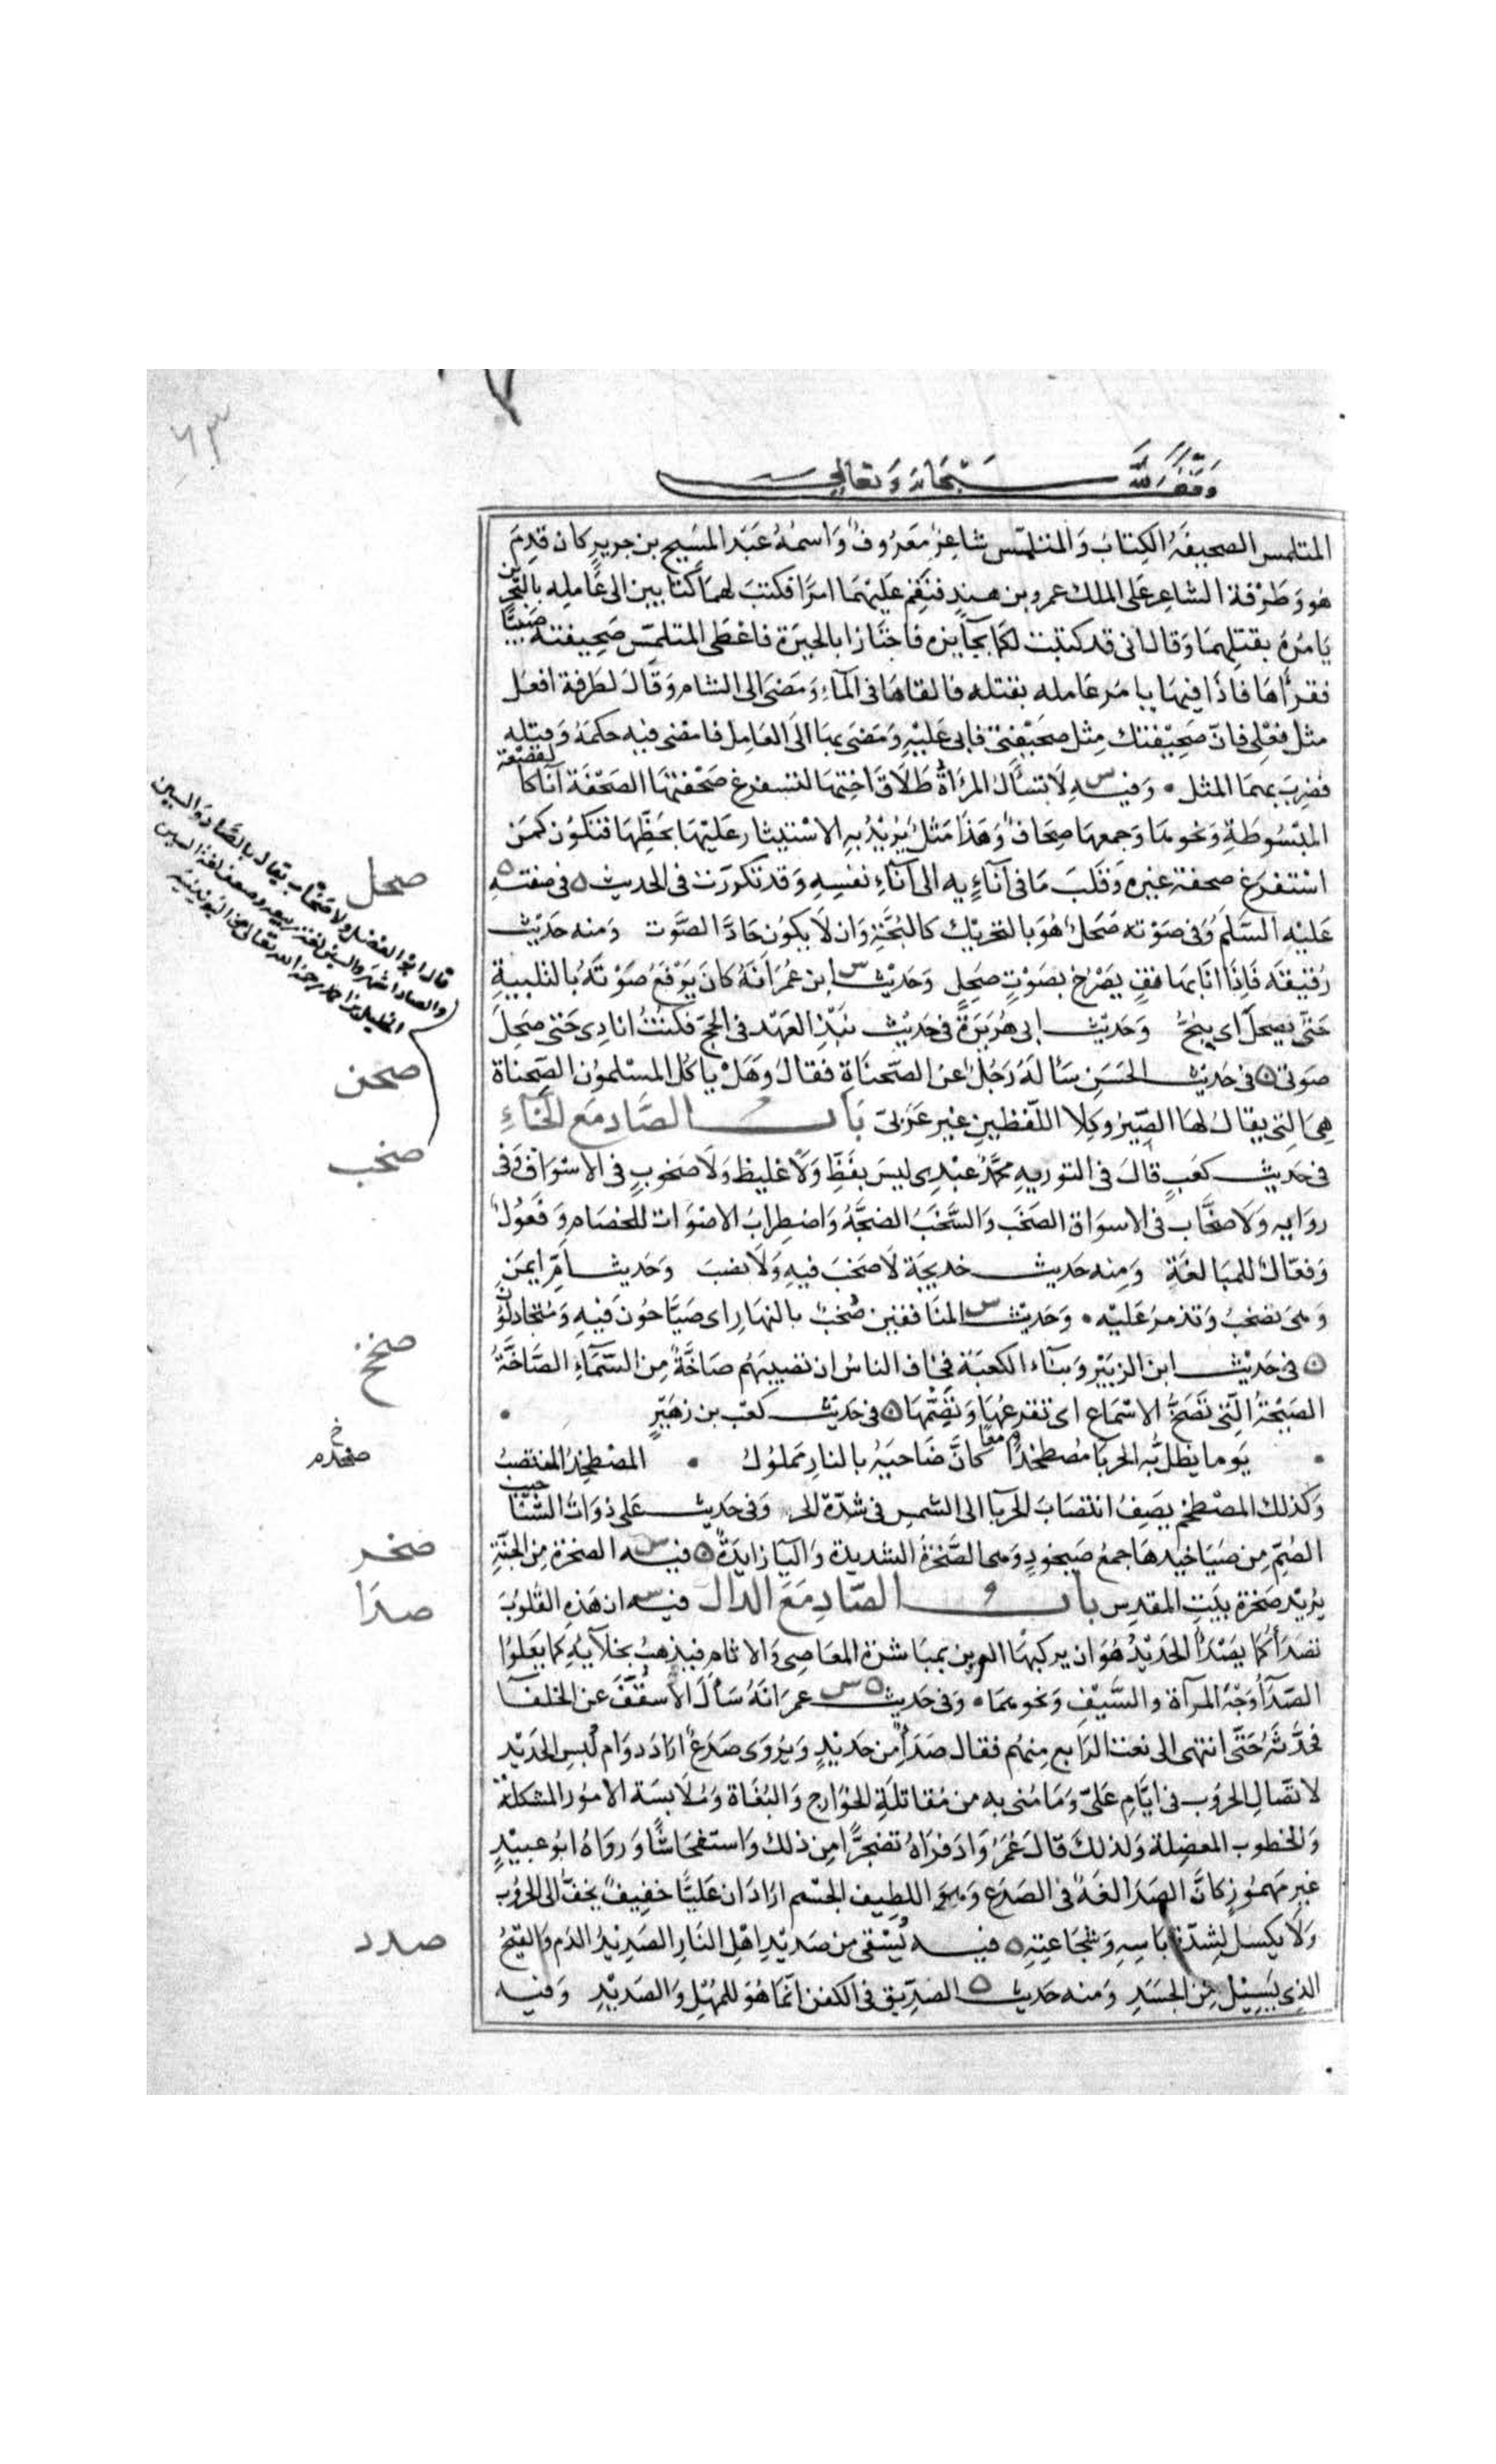 ٦٣
وقف لله سبحانه وتعالى
المتلمس الصحيفَةُ الكِتابُ وَالمتلمّس شاعِرٌ مَعرُوفٌ وَاسمُهُ عَبْد المَسِيح بن جرير كان قدِمَ
هو وَطَرَفة الشاعِر عَلى الملك عمرو بن هندٍ فنَقِم عَلَيْهمَا امرًا فكتبَ لهمَا كتابين الى عَامِله بالبَحرين
يَامُرُه بقتلِهمَا وَقالَ انى قد كتبت لكما بجآيزه فاجتازا بالحيرَة فاعْطَى المتلمّس صَحِيفته صَبِيًّا
فقرأهَا فاذَا فيهَا يامر عَامله بقتله فالقاهَا فى المآءِ وَمَضى الى الشام وَقَالَ لطَرفة افعل
مثل فعْلى فانّ صَحِيْفتك مِثل صَحِيْفتى فابى عَليْهِ وَمَضى بهَا الَى العَامِل فامْضى فيه حكمَهُ وَقتله
فضرِبَ بهمَا المثل • وَفيه س لَا تسأل المَرْاةُ طَلَاقَ اختِهَا لتستفرغ صَحْفتهَا الصَحْفة اناٌ كالقصْعَة
المبْسُوطَةِ وَنحوهَا وَجمعهَا صِحَافٌ وَهَذا مَثلٌ يُرِيْدُ بهِ الاسْتيثار عَليْهَا بحَظِّهَا فتكوُن كمَن
اسْتفرَغ صحفة غيرِه وَقَلَبَ مَا فى آناءِيه الى آناءِ نفسِهِ وَقد تكررَت فى الحديث ه فى صفته
عَليْه السَلَم وَفى صَوْته صَحَلٌ هُوَ بالتحريك كالبُحَّة وَان لَا يكوُن حَادَّ الصَّوت وَمنه حَديْث
رُقيقة فَاذا انَا بهَاتفٍ يَصْرُخ بصَوْتٍ صحِلٍ وَحَديْث س ابن عُمَر انَّهُ كانَ يَرْفعُ صَوْتهُ بالتلبيةِ
حَتّى يَصحَلَ اى يبحّ وَحَديْث ابى هُرَيرَة فى حَديْث نبْذِ العَهْد فى الحجّ فكُنتُ انادِى حَتى صَحِلَ
صَوْتى ه فى حَديث الحَسَن سَألهُ رَجُلٌ عن الصّحنَاة فقالَ وَهَلْ ياكُل المسْلموُن الصّحناة
هِىَ التِى يقالُ لهَا الصِّير وَكِلَا اللّفظيْنِ غير عَرَبىّ بَاب الصَّاد مَع الخَآءِ
فى حَديث كعَبٍ قالَ فى التوريه محَمَّدٌ عَبْدِى ليسَ بفَظٍّ وَلَا غليظ وَلَا صَخوبٍ فى الاسْوَاق وَفى
روَايه وَلَا صخَّاب فى الاسوَاق الصَخَب وَالسَّخَبُ الضجَّةُ وَاضطِرابُ الاصْوَات للخصَام وَفعُولٌ
وَفعّالٌ للمبَالغَةِ وَمِنه حَديث خديجَة لَا صَخبَ فيهِ وَلَا نصبَ وَحَديث اُمِّ ايمَن
وَهىَ تصْخبُ وَتذمرُ عَليْه • وَحَديْث س المنَافقين صُخبٌ بالنهَار اى صَيَّاحُونَ فيهِ وَمُتجَادلوُن
ه فى حَديْث ابن الزبَيْر وَبنآء الكعبَة فخافَ الناسُ ان تصيبَهُم صَاخَّةٌ مِنَ السَّمآءِ الصَّاخَّةُ
الصَيْحَةُ الَّتِى تَصُخُّ الاسْمَاع اى تقرعُهَا وَتُصِمُّهَا ه فى حَديْث كعْب بن زهَيْرٍ •
• يَوما يظلّ به الحِربا مُصطخِدًا م معًا كَانَّ ضَاحيَهُ بالنارِ مَملوُك • المصْطخِدُ المنتصبُ
وَكذلك المصْطخم يصَفِ انتصَابَ الحِربَا الى الشمس فى شدّة الحَر وَفى حَديث عَلى ذوَاتُ الشنَاخيب
الصُمّ مِن صَيَاخيدهَا جمعُ صَيخودٍ وَهى الصَّخرَة الشديدة وَاليَا زايدَةٌ ه فيه س الصخرَة مِن الجَنَّةِ
يُريْد صَخرَة بيْتِ المقدِس باب الصّادِ مَعَ الدال فيه س ان هَذهِ القلوُبَ
تصْدَأ كمَا يَصْدَأ الحَديْدُ هُوَ ان يركبهَا الرين بمبَاشرَة المعَاصِى وَالاثام فيذهبُ بجَلآيهِ كما يَعْلوُا
الصَدَأ وَجْهَ المرآة والسَّيْفِ وَنحوِهمَا • وَفى حَديث ه س عمرَ انَّهُ سَأَلَ الأسْقُفّ عن الخلفآ
فحَدَّثهُ حَتَّى انتهى الى نعت الرَابع مِنهُم فقال صَدَأٌ مِن حَديْدٍ وَيُروَى صَدَعٌ ارَادَ دوَام لُبسِ الحَديْد
لاتصَالِ الحروُبِ فى ايَّامِ عَلىّ وَمَا مُنى به من مُقاتلَةِ الخوَارِج وَالبُغَاة وَمُلَابسَة الامُورِ المشكلَة
وَالخطوب المعضِلة وَلذلكَ قالَ عُمَرُ وَادفرَاهُ تضجرًّا مِن ذلك وَاستفحَاشًا وَرواهُ ابُو عبيْدٍ
غير مَهمُوزٍ كانَّ الصَدَا لغَةٌ فى الصَدَع وَهوَ اللطيف الجسْم ارَادَ ان عَليًّا خفِيفٌ يَخِفّ الى الحرُوب
وَلَا يكسل لِشِدّة باسِهِ وَشجَاعتِهِ ه فيه يُسْقى من صَديْدِ اهْلِ النَارِ الصَديْدُ الدَم وَالقيحُ
الذِى يَسِيْل مِن الجَسَدِ وَمنه حَديث ه الصدّيق فى الكفن انّمَا هُوَ للمُهْلِ وَالصَديْدِ وَفيه
صحل
قال ابو الفضل ولا صخاب يقال بالصاد والسين
والصاد اشهر والسين لغة ربيعه
صحن
صخب
صخخ
صخر
صدا
صدد